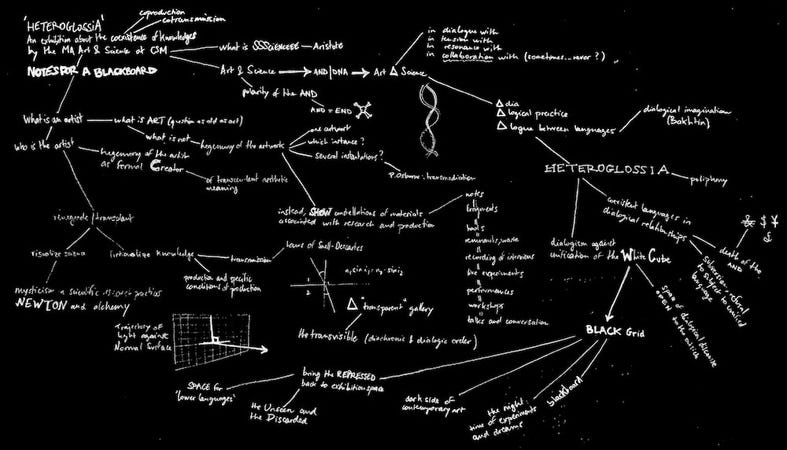 'HETEROGLOSSIA'
coproduction
cotransmission
An exhibition about the coexistence of knowledges
by the MA Art & Science at CSM
NOTES FOR A BLACKBOARD
what is SSSciencEEE
Aristotle
Art & Science
AND/DNA
Art Δ Science
in dialogue with
in tension with
in resonance with
in collaboration with (sometimes...never?)
parity of the AND
AND = END
Δ dia
Δ logical practice
Δ logue between languages
dialogical imagination
(Bakhtin)
What is an artist
what is ART (question as old as art)
what is not
who is the artist
hegemony of the artist
as formal Creator
of transcendent aesthetic
meaning
hegemony of the artwork
one artwork
which instance?
several instantiations?
P. Osborne: transmediation
HETEROGLOSSIA
poliphony
renegade/transplant
instead, SHOW constellations of materials
associated with research and production
notes
fragments
tools
remnants, waste
recording of interviews
live experiments
performances
workshops
talks and conversation
dialogism against
unification of the White Cube
coexistent languages in
dialogical relationships
death of the
AND
$ ¥
subversion + refusal
to subject to unified
language
space of dialogical discourse
OPEN to the outside
visualize science
fictionalize knowledge
transmission
production and specific
conditions of production
Laws of Snell-Descartes
n₁ sin i₁ = n₂ sin i₂
1
2
Δ "transparent" gallery
the transvisible (diachronic & dialogic order)
mysticism & scientific research practices
NEWTON and alchemy
Trajectory of
light against
Normal Surface
BLACK Grid
bring the REPRESSED
back to exhibition space
SPACE for
'lower languages'
the Unseen and
the Discarded
dark side of
contemporary art
the night
time of experiments
and dreams
blackboard